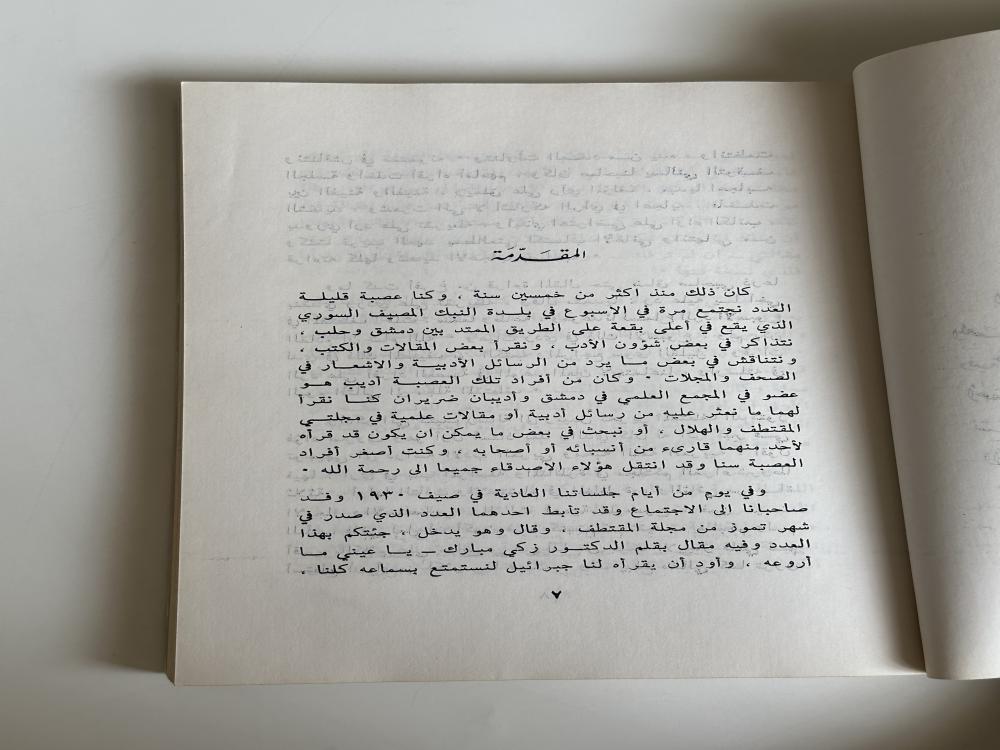 المقدّمَة
كان ذلك منذ اكثر من خمسين سنة ، وكنا عصبة قليلة
العدد نجتمع مرة في الاسبوع في بلدة النبك المصيف السوري
الذي يقع في أعلى بقعة على الطريق الممتد بين دمشق وحلب ،
نتذاكر في بعض شؤون الأدب ، ونقرأ بعض المقالات والكتب ،
ونتناقش في بعض ما يرد من الرسائل الأدبية والاشعار في
الصحف والمجلات ٠ وكان من أفراد تلك العصبة أديب هو
عضو في المجمع العلمي في دمشق وأديبان ضريران كنا نقرأ
لهما ما نعثر عليه من رسائل أدبية أو مقالات علمية في مجلتي
المقتطف والهلال ، أو نبحث في بعض ما يمكن ان يكون قد قرأه
لأحد منهما قارىء من أنسبائه أو أصحابه ، وكنت أصغر أفراد
العصبة سنا وقد انتقل هؤلاء الاصدقاء جميعا الى رحمة الله ٠
وفي يوم من أيام جلساتنا العادية في صيف ١٩٣٠ وفد
صاحبانا الى الاجتماع وقد تأبط احدهما العدد الذي صدر في
شهر تموز من مجلة المقتطف ، وقال وهو يدخل ، جئتكم بهذا
العدد وفيه مقال بقلم الدكتور زكي مبارك ــ يا عيني ما
أروعه ، وأود أن يقرأه لنا جبرائيل لنستمتع بسماعه كلنا ،
٧